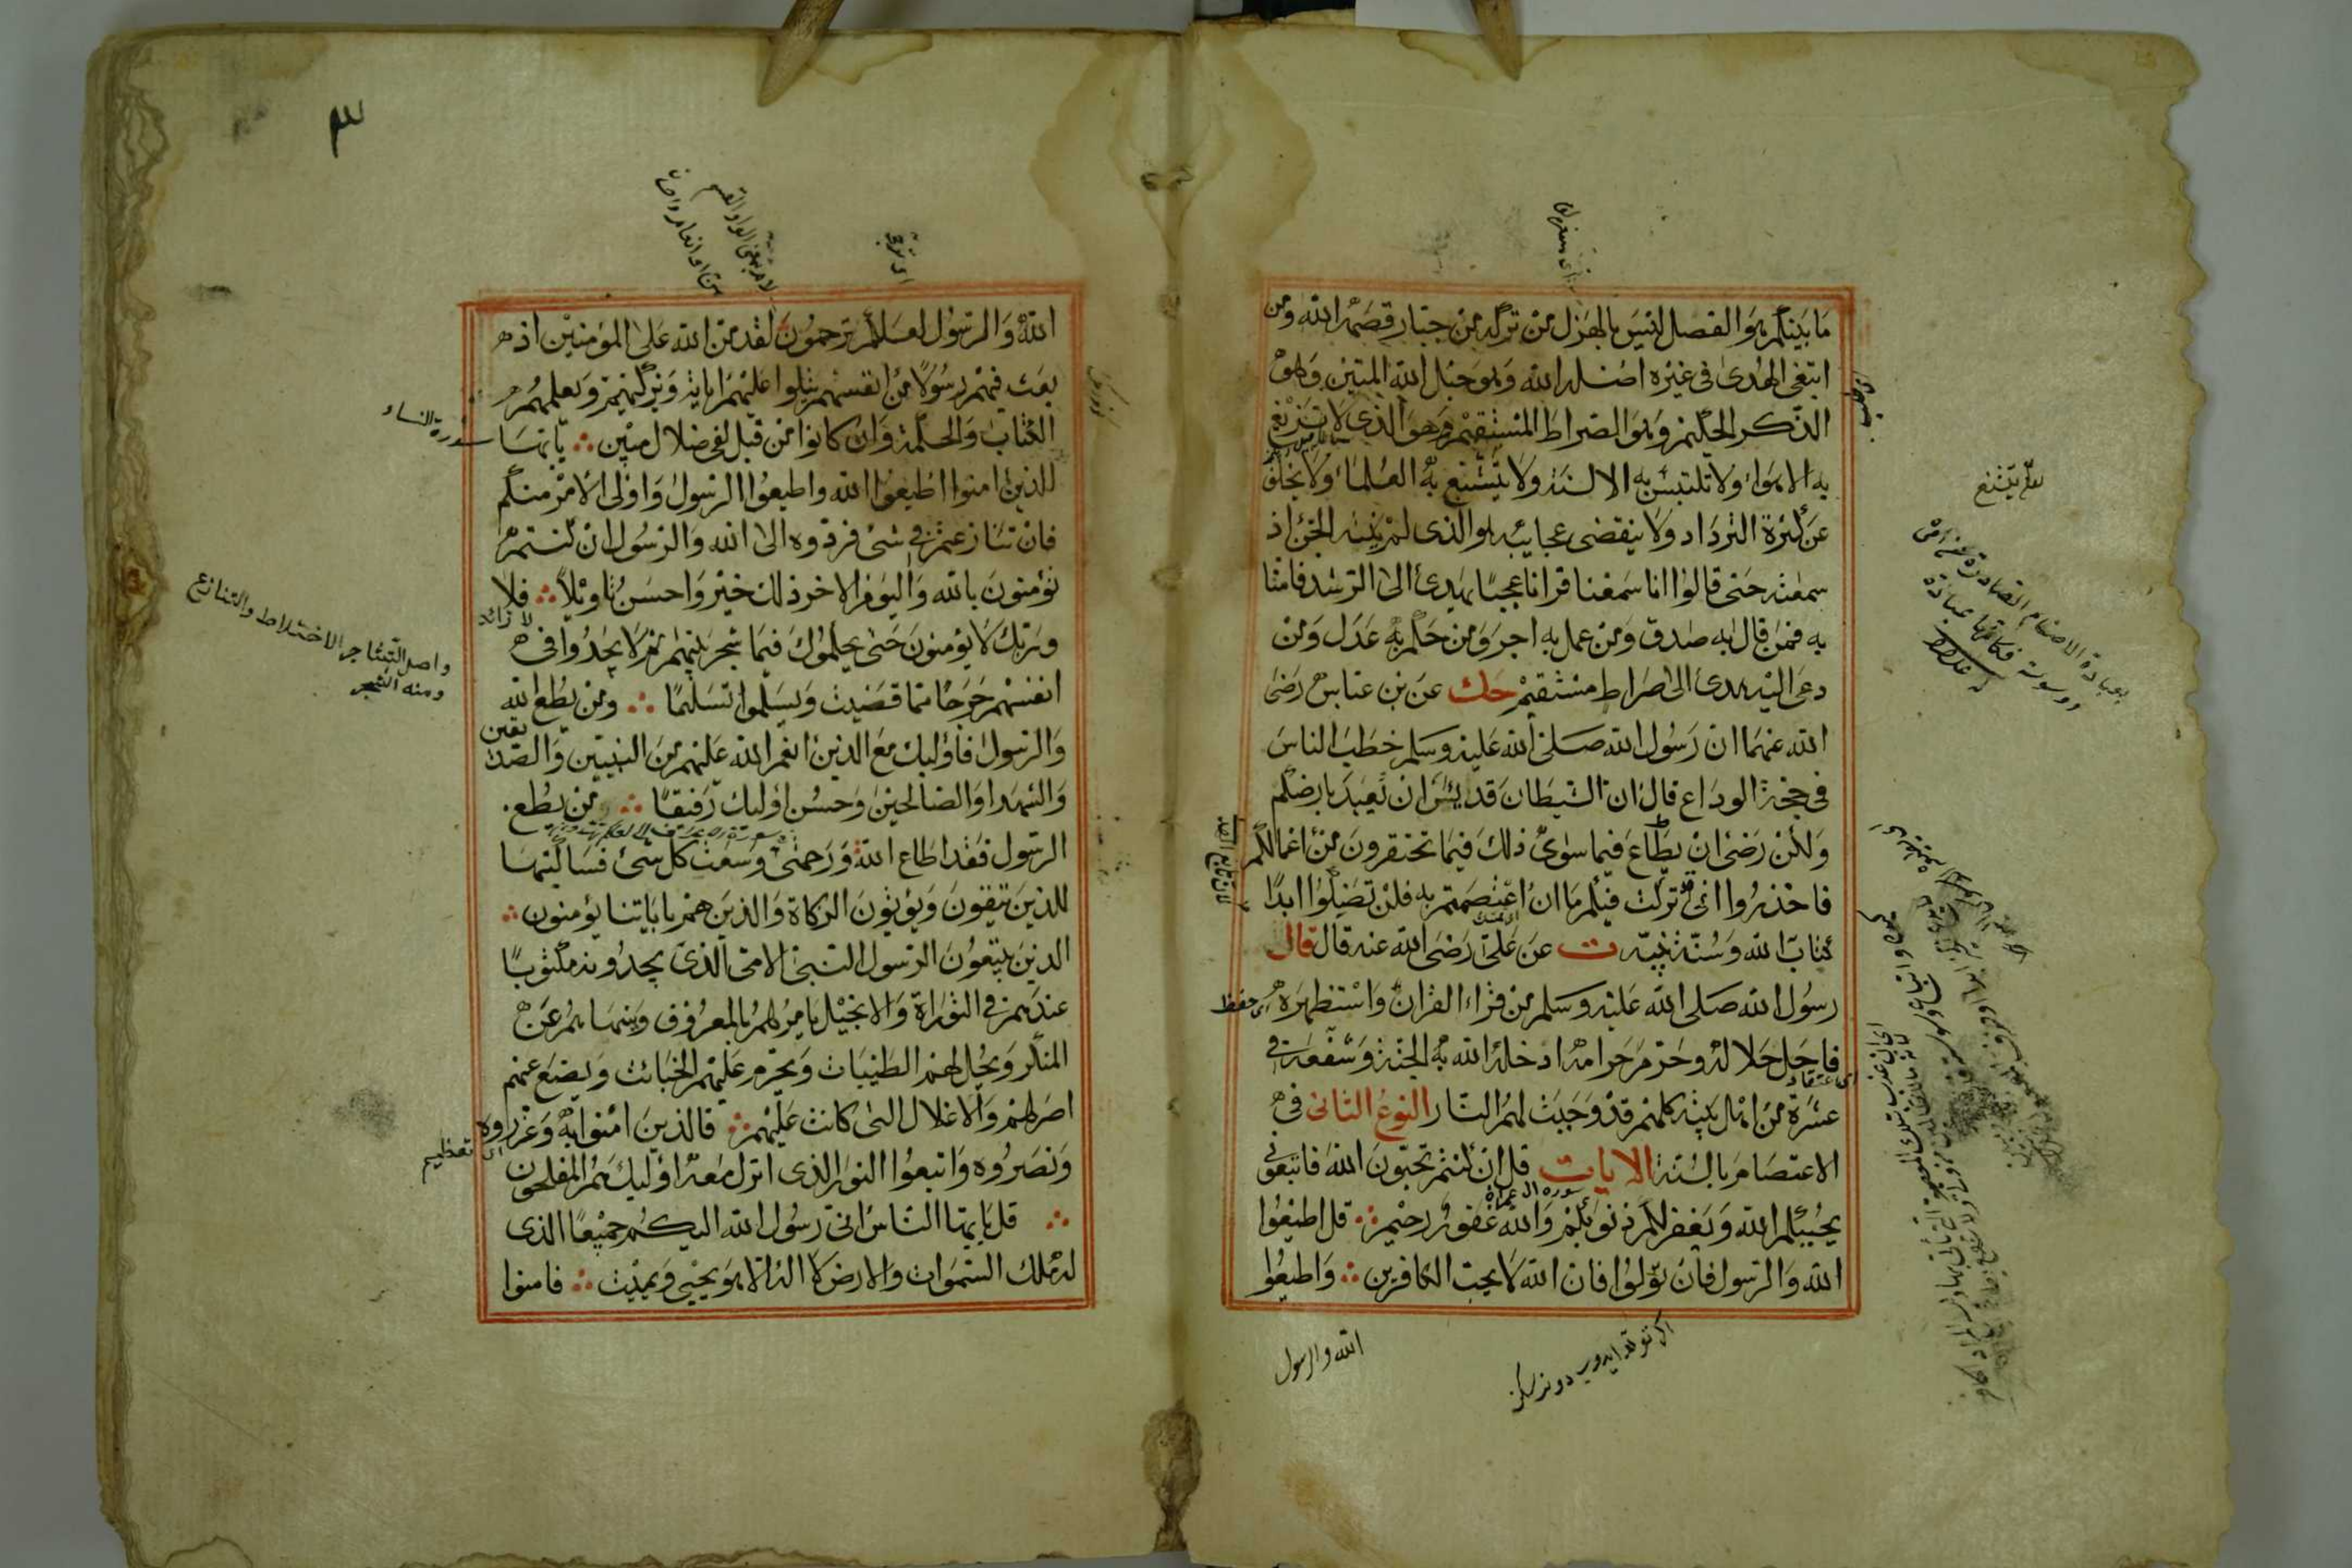 ما بينكم هو الفصل ليس بالهزل من تركه من جبار قصمه الله ومن
ابتغى الهدى في غيره اضله الله وهو حبل الله المتين وهو
الذكر الحكيم وهو الصراط المستقيم وهو الذى لا تزيغ
به الاهواء ولا تلتبس به الالسنة ولا يتشبع به العلماء ولا يخلق
عن كثرة الترداد ولا ينقضى عجايبه هو الذى لم ينته الجن اذ
سمعته حتى قالوا انا سمعنا قرانا عجبا يهدى الى الرشد فامنا
به فمن قال به صدق ومن عمل به اجر ومن حكم به عدل ومن
دعى اليه هدى الى صراط مستقيم حك عن بن عباس رضى
الله عنهما ان رسول الله صلى الله عليه وسلم خطب الناس
في حجة الوداع قال ان الشيطان قد يئس ان يعبد بارضكم
ولكن رضى ان يطاع فيما سوى ذلك فيما تحتقرون من اعمالكم
فاحذروا انى تركت فيكم ما ان اعتصمتم به فلن تضلوا ابدا
كتاب الله وسنة نبيه ت عن على رضى الله عنه قال قال
رسول الله صلى الله عليه وسلم من قراء القران واستظهره
فاحل حلاله وحرم حرامه ادخله الله به الجنة وشفعه في
عشرة من اهل بيته كلهم قد وجبت لهم النار النوع الثانى في
الاعتصام بالسنة الايات قل ان كنتم تحبون الله فاتبعونى
يحببكم الله ويغفر لكم ذنوبكم والله غفور رحيم قل اطيعوا
الله والرسول فان تولوا فان الله لا يحب الكافرين واطيعوا
الله والرسول
اى حفظ
سورة ال عمران
٣
الله والرسول لعلكم ترحمون لقد من الله على المؤمنين اذ
بعث فيهم رسولا من انفسهم يتلوا عليهم اياته ويزكيهم ويعلمهم
الكتاب والحكمة وان كانوا من قبل لفى ضلال مبين يا ايها
الذين امنوا اطيعوا الله واطيعوا الرسول واولى الامر منكم
فان تنازعتم في شئ فردوه الى الله والرسول ان كنتم
تؤمنون بالله واليوم الاخر ذلك خير واحسن تاويلا فلا
وربك لا يؤمنون حتى يحكموك فيما شجر بينهم ثم لا يجدوا في
انفسهم حرجا مما قضيت ويسلموا تسليما ومن يطع الله
والرسول فاولئك مع الذين انعم الله عليهم من النبيين والصديقين
والشهدا والصالحين وحسن اولئك رفيقا من يطع
الرسول فقد اطاع الله ورحمتى وسعت كل شئ فساكتبها
للذين يتقون ويؤتون الزكاة والذين هم باياتنا يؤمنون
الذين يتبعون الرسول النبى الامى الذى يجدونه مكتوبا
عندهم في التوراة والانجيل يامرهم بالمعروف وينهاهم عن
المنكر ويحل لهم الطيبات ويحرم عليهم الخبائث ويضع عنهم
اصرهم والاغلال التى كانت عليهم فالذين امنوا به وعزروه
ونصروه واتبعوا النور الذى انزل معه اولئك هم المفلحون
قل يا ايها الناس انى رسول الله اليكم جميعا الذى
له ملك السموات والارض لا اله الا هو يحيى ويميت فامنوا
سورة النساء
لا زائد
واصل التشاجر الاختلاط والتنازع
ومنه الشجر
اى تعظيم